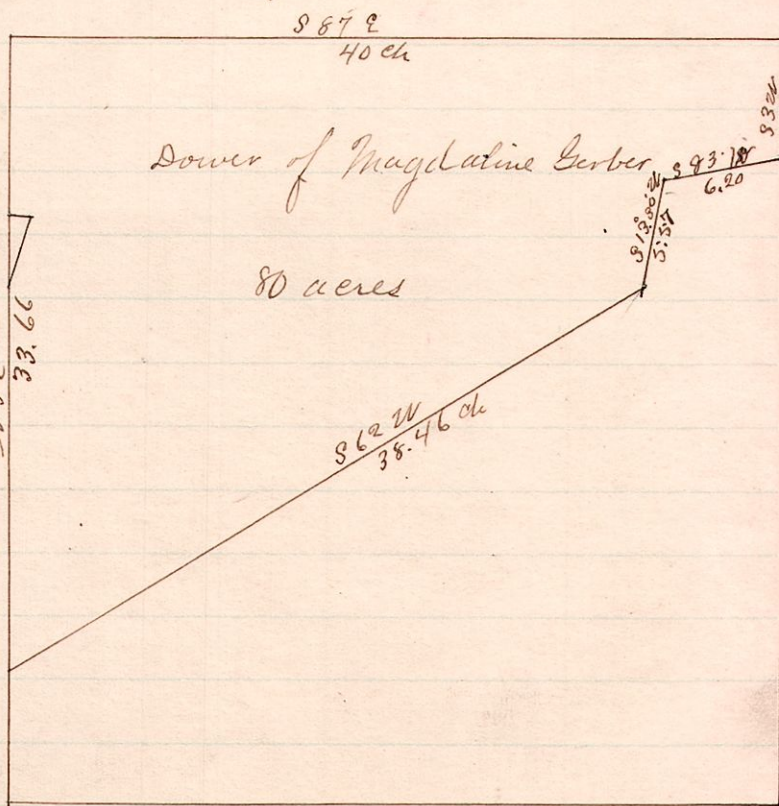 S 87 E
40 ch
Dower of Magdaline Gerber
S 83
6.20
S 3 W
S 13
5.57
80 acres
33.66
S 62 W
38.46 ch